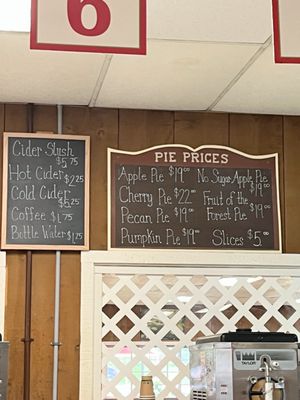 6
Cider Slush
$5.75
Hot Cider $2.25
Cold Cider
$2.25
Coffee $1.75
Bottle Water $1.25
PIE PRICES
Apple Pie $19.00
Cherry Pie $22.00
Pecan Pie $19.00
Pumpkin Pie $19.00
No Sugar Apple Pie
$19.00
Fruit of the
Forest Pie $19.00
Slices $5.00
TAYLOR